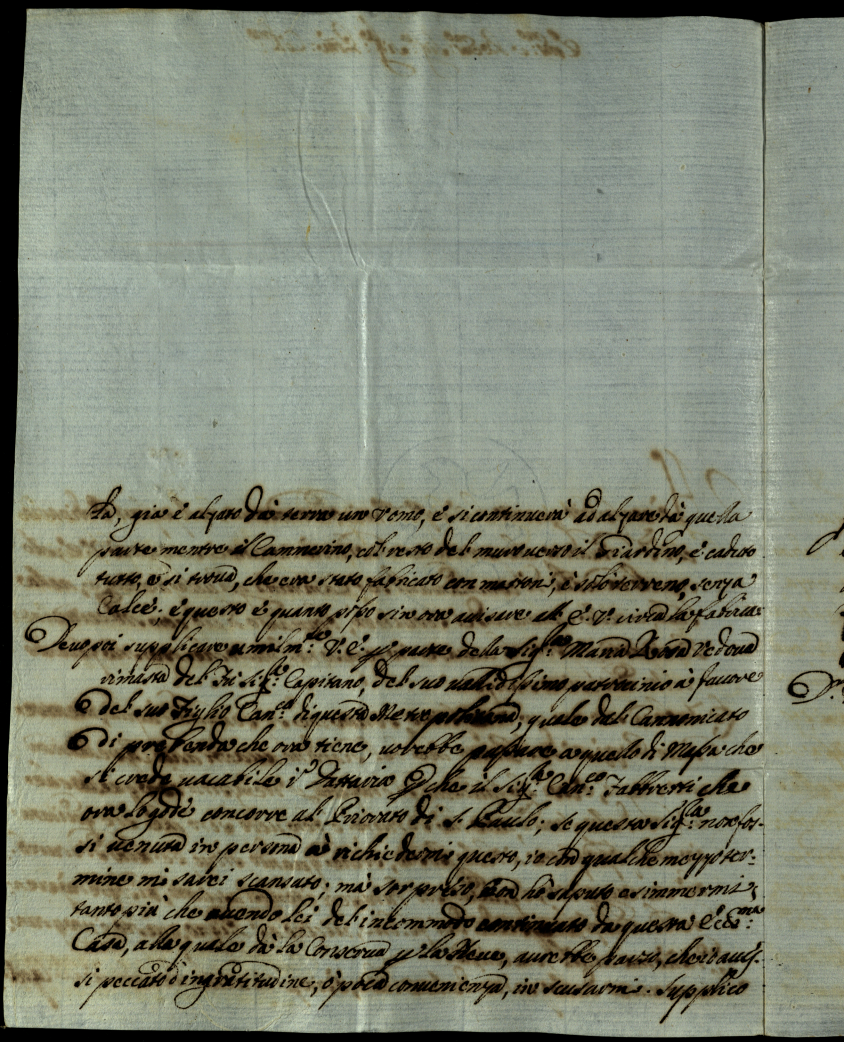 ta, gia è alzato dà terra un vomo, è si continuerà ad alzare dà quella
parte mentre il Cammerino, col resto del muro verso il Giardino, è caduto
tutto, e si trovò, che era stato fabricato con mattoni, è solo terreno, senza
Calce; è questo è quanto posso sin ora avisare al' E: V: circa la fabrica.
Devo poi supplicare umilm:te V: E: p parte della Sig:ra Maria Vedova
rimasta del Sig:re Capitano, del suo validissimo patrocinio à favore
del suo Figlio Can:co di questa Metropolitana; quale dal Cannonicato
di prebenda che ora tiene, vorebbe passare a quello di Massa che
si crede vacabile in Dattaria p che il Sig:re Can:co Fabbretti che
ora lo gode concorre al Priorato di S. Paulo; se questa Sig:ra non fos-
si venuta in persona à richiedermi questo, io con qualche mezzo ter-
mine mi sarei scansato; mà sorpreso, non hò saputo esimmermi;
tanto più che avendo lei del incommodo continuato da questa Ecc:ma
Casa, alla quale dà la Conserva p la Neve, averebbe parso, che io aves-
si peccato d'ingratitudine, ò poca convenienza, in scusarmi. Supplico